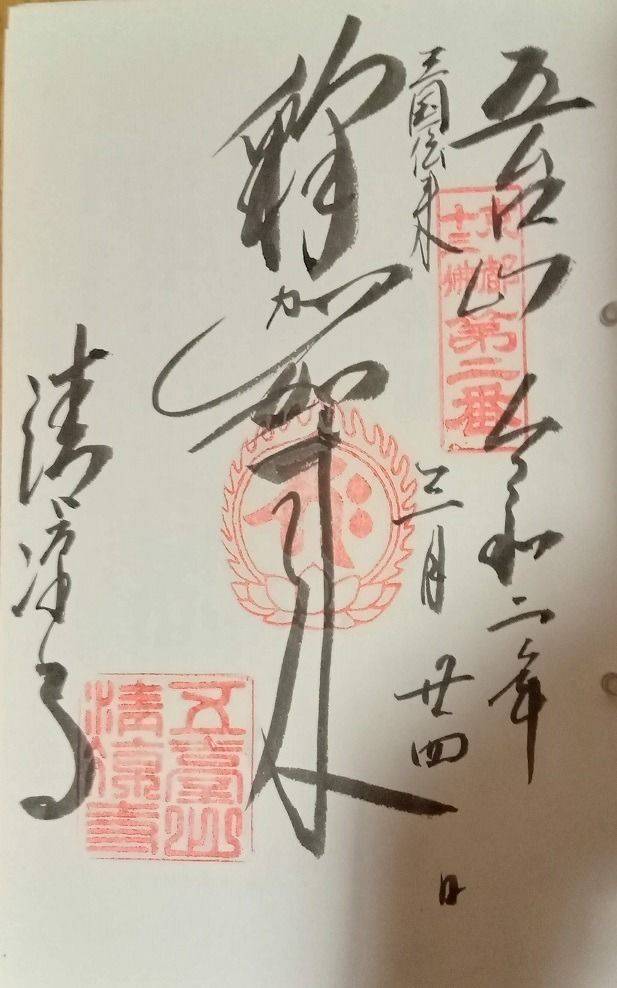 五台山 令和二年
京都
十三佛
第二番
三国伝来
三月廿四日
釋迦如来
清凉寺
五臺山
清凉寺